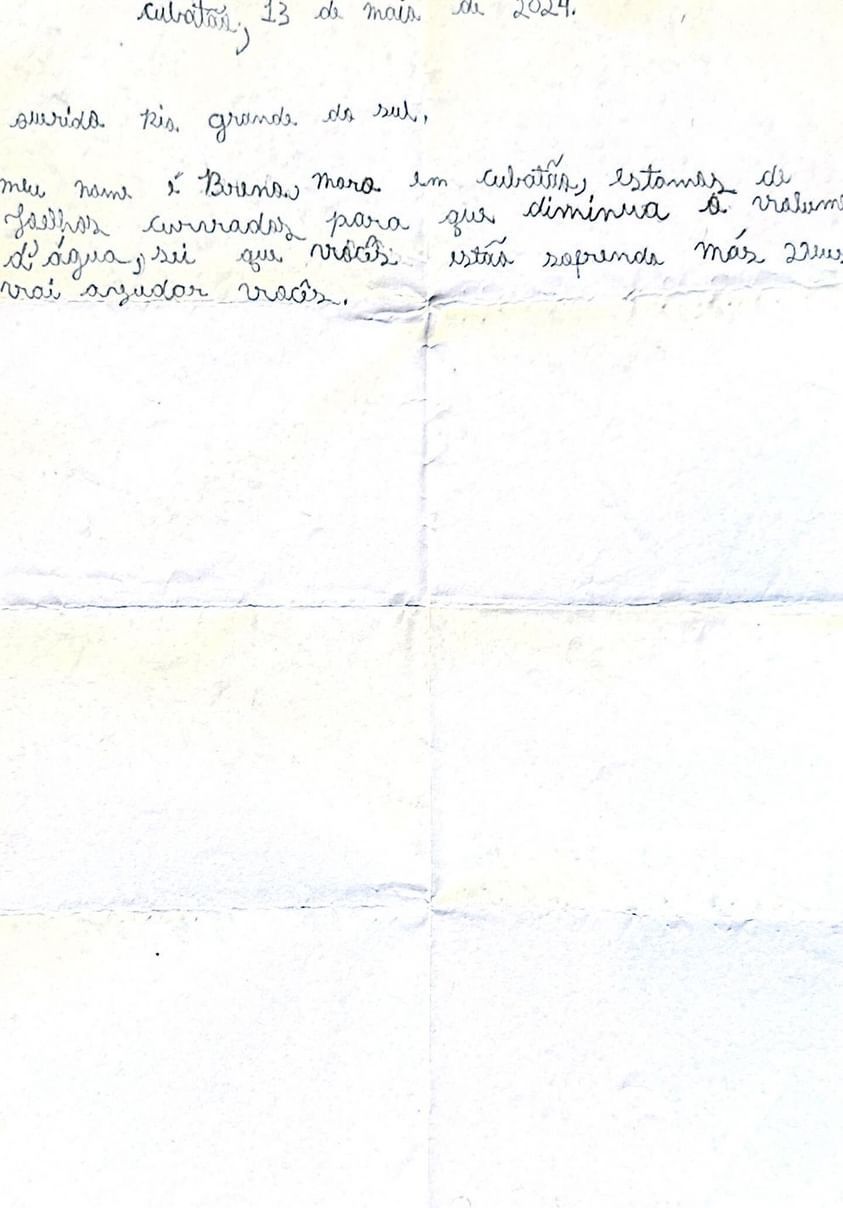 cubatão, 13 de maio de 2024.
querido Rio grande do sul,
meu nome é Brena, moro em cubatão, estamos de
Joelhos curvados para que diminua o volume
d'água, sei que vocês estão sofrendo más Deus
vai anjudar vocês.